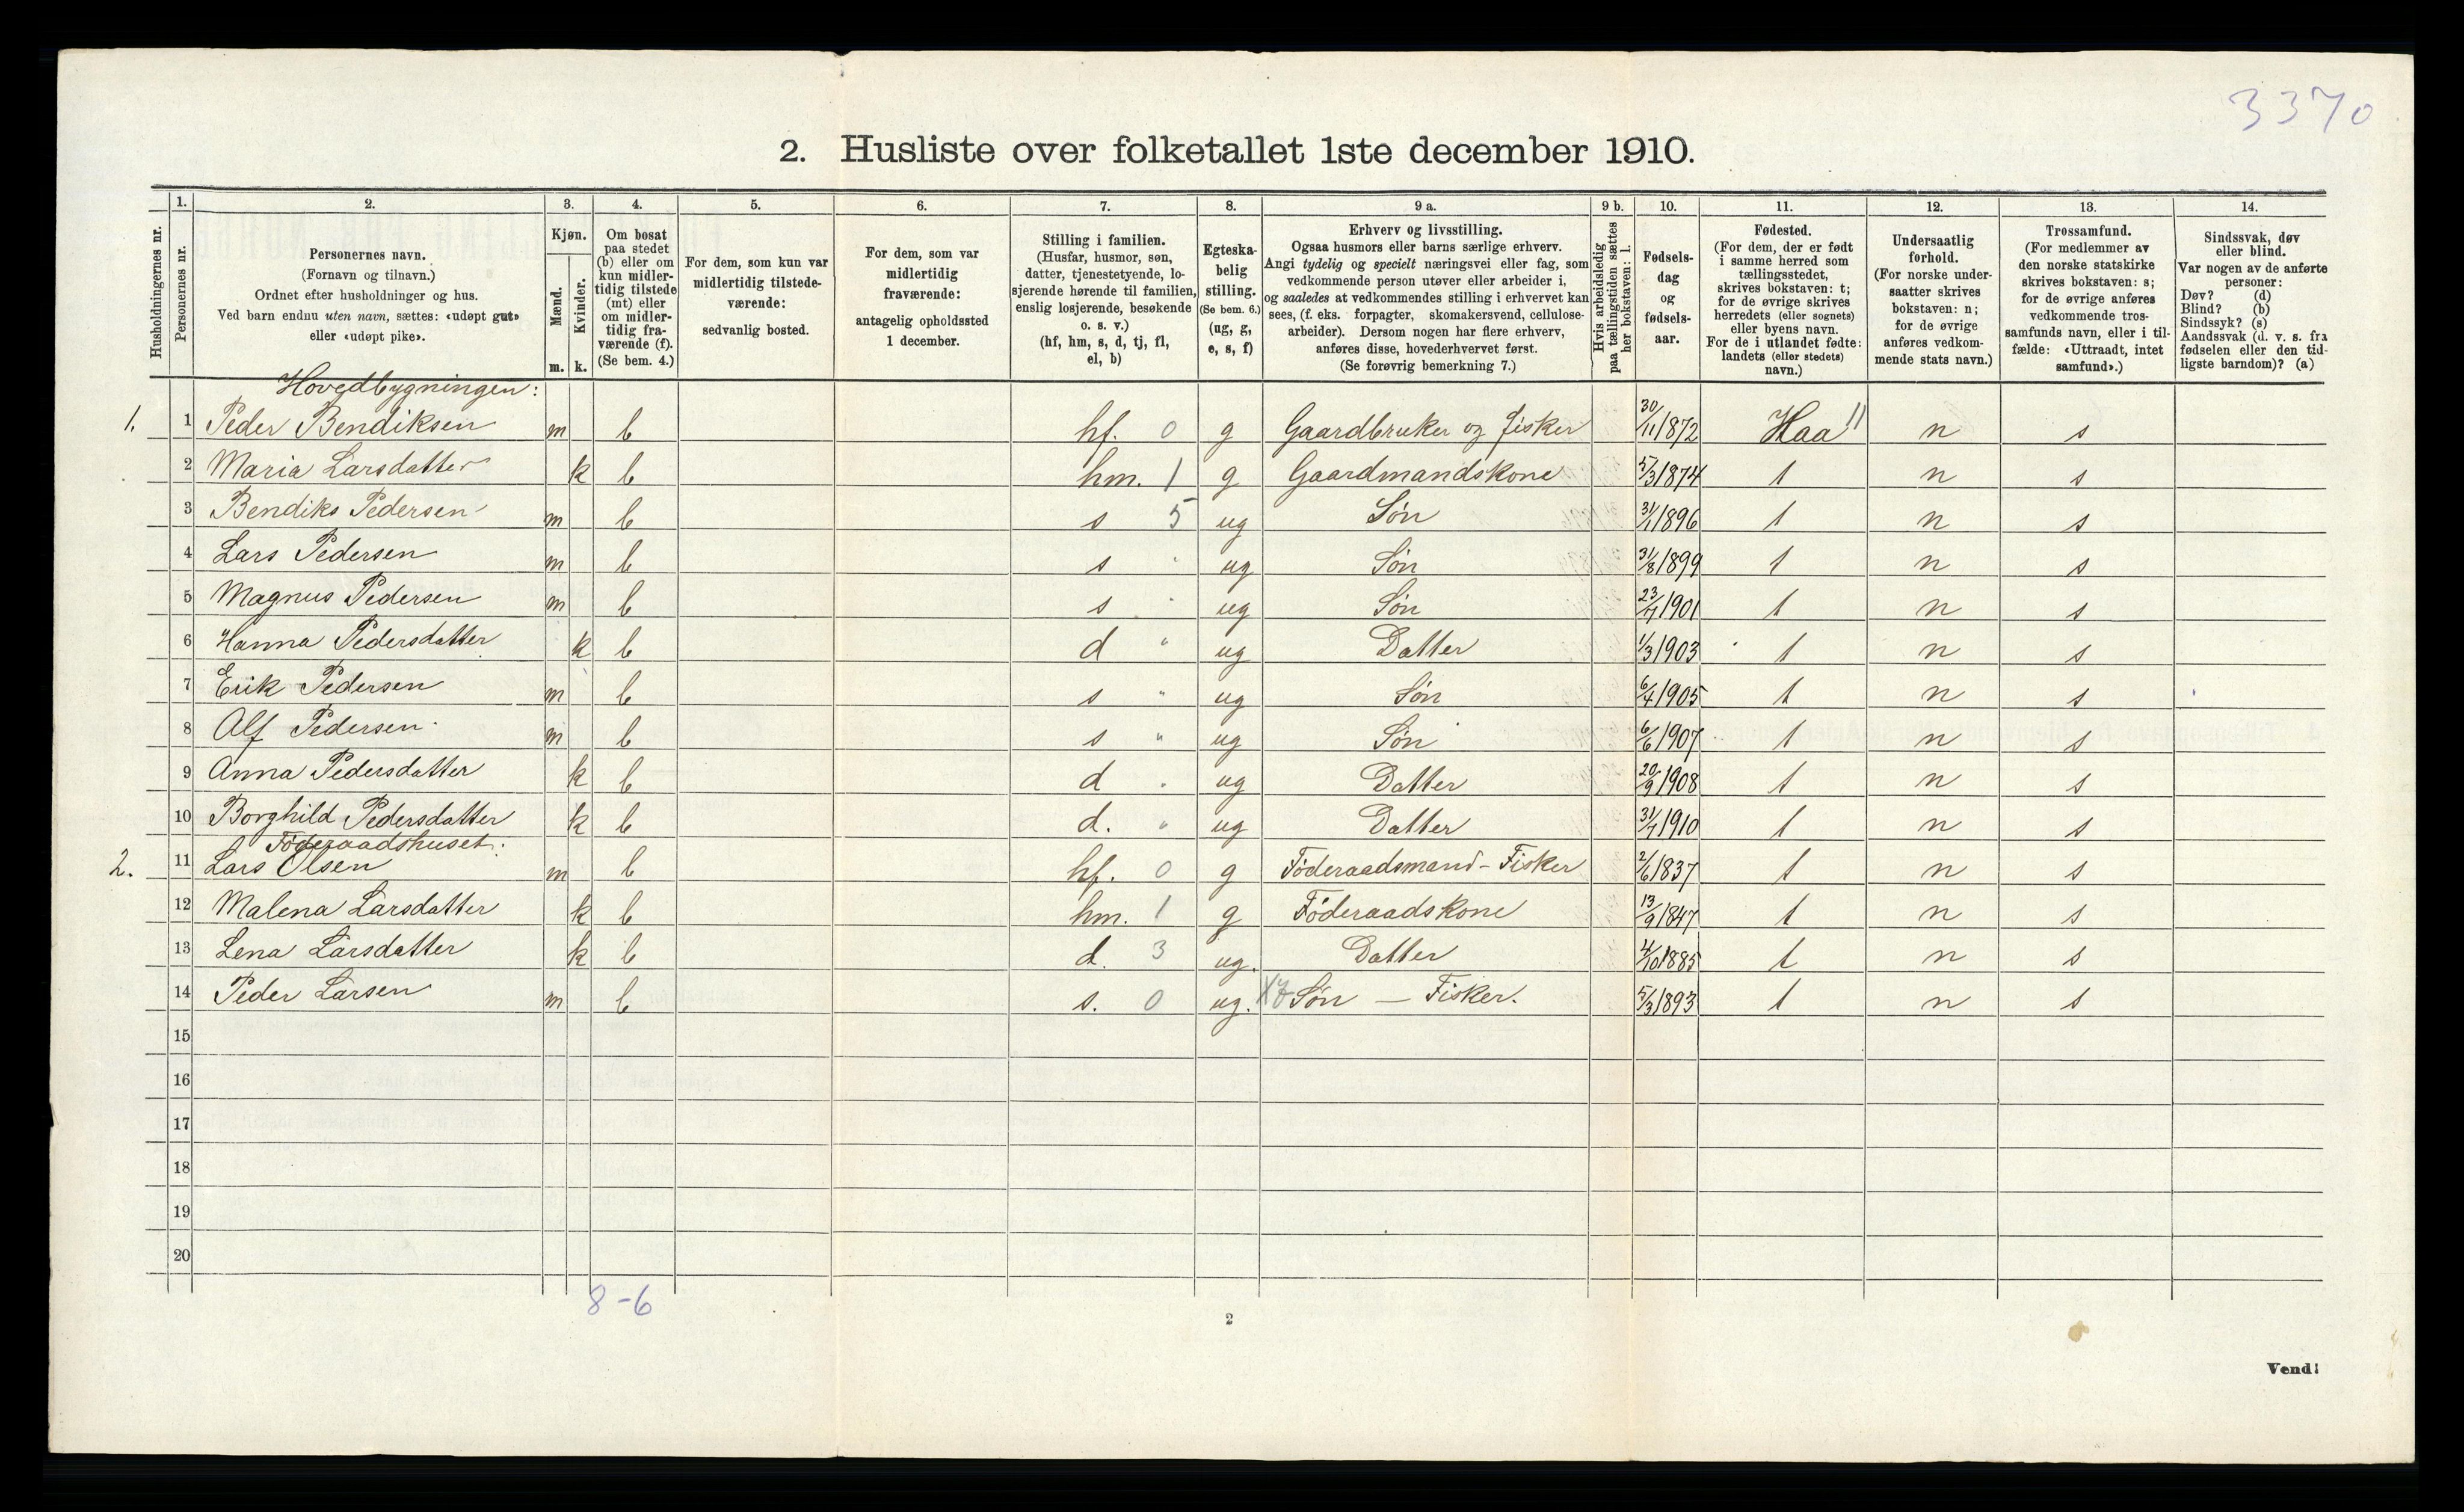 3370
2. Husliste over folketallet 1ste december 1910.
Husholdningernes nr.
1. Personernes nr.
2. Personernes navn. (Fornavn og tilnavn.) Ordnet efter husholdninger og hus. Ved barn endnu uten navn, sættes: «udøpt gut» eller «udøpt pike».
3. Kjøn. Mænd. m. Kvinder. k.
4. Om bosat paa stedet (b) eller om kun midlertidig tilstede (mt) eller om midlertidig fraværende (f). (Se bem. 4.)
5. For dem, som kun var midlertidig tilstedeværende: sedvanlig bosted.
6. For dem, som var midlertidig fraværende: antagelig opholdssted 1 december.
7. Stilling i familien. (Husfar, husmor, søn, datter, tjenestetyende, losjerende hørende til familien, enslig losjerende, besøkende o. s. v.) (hf, hm, s, d, tj, fl, el, b)
8. Egteskabelig stilling. (Se bem. 6.) (ug, g, e, s, f)
9 a. Erhverv og livsstilling. Ogsaa husmors eller barns særlige erhverv. Angi tydelig og specielt næringsvei eller fag, som vedkommende person utøver eller arbeider i, og saaledes at vedkommendes stilling i erhvervet kan sees, (f. eks. forpagter, skomakersvend, cellulosearbeider). Dersom nogen har flere erhverv, anføres disse, hovederhvervet først. (Se forøvrig bemerkning 7.)
9 b. Hvis arbeidsledig paa tællingstiden sættes her bokstaven: l.
10. Fødselsdag og fødselsaar.
11. Fødested. (For dem, der er født i samme herred som tællingsstedet, skrives bokstaven: t; for de øvrige skrives herredets (eller sognets) eller byens navn. For de i utlandet fødte: landets (eller stedets) navn.)
12. Undersaatlig forhold. (For norske undersaatter skrives bokstaven: n; for de øvrige anføres vedkommende stats navn.)
13. Trossamfund. (For medlemmer av den norske statskirke skrives bokstaven: s; for de øvrige anføres vedkommende trossamfunds navn, eller i tilfælde: «Uttraadt, intet samfund».)
14. Sindssvak, døv eller blind. Var nogen av de anførte personer: Døv? (d) Blind? (b) Sindssyk? (s) Aandssvak (d. v. s. fra fødselen eller den tidligste barndom)? (a)
Hovedbygningen:
1. 1 Peder Bendiksen m b hf. 0 g Gaardbruker og fisker 30/11 1872 Haa 11 n s
2 Maria Larsdatter k b hm. 1 g Gaardmandskone 5/3 1874 t n s
3 Bendiks Pedersen m b s 5 ug Søn 31/1 1896 t n s
4 Lars Pedersen m b s " ug Søn 31/8 1899 t n s
5 Magnus Pedersen m b s " ug Søn 23/7 1901 t n s
6 Hanna Pedersdatter k b d " ug Datter 1/3 1903 t n s
7 Erik Pedersen m b s " ug Søn 6/4 1905 t n s
8 Alf Pedersen m b s " ug Søn 6/6 1907 t n s
9 Anna Pedersdatter k b d " ug Datter 20/9 1908 t n s
10 Borghild Pedersdatter k b d. " ug Datter 31/7 1910 t n s
Föderaadshuset:
2. 11 Lars Olsen m b hf. 0 g Föderaadsmand - Fisker 2/6 1837 t n s
12 Malena Larsdatter k b hm. 1 g Föderaadskone 13/9 1847 t n s
13 Lena Larsdatter k b d. 3 ug. Datter 4/10 1885 t n s
14 Peder Larsen m b s. 0 ug. Søn — Fisker. 5/3 1893 t n s
15
16
17
18
19
20
8-6
2
Vend!